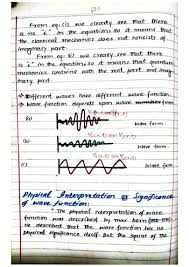 From eq.(i) we clearly see that there
is no 'i' in the equation so it means that
the classical mechanics does not consists of
imaginary part.
From eq. (ii) we clearly see that there
is 'i' in the equation so it means that quantum
mechanics contains both the real part and imagi
nary part.
Different waves have different wave function.
wave function depends upon wave form
(a)
Wave form
(b)
Wave form
(c)
Wave form
Physical Interpretation or Significance
of wave function:
The physical interpretation of wave
function was described by max born
He described that the wave function has no
physical significance itself. But the square of the